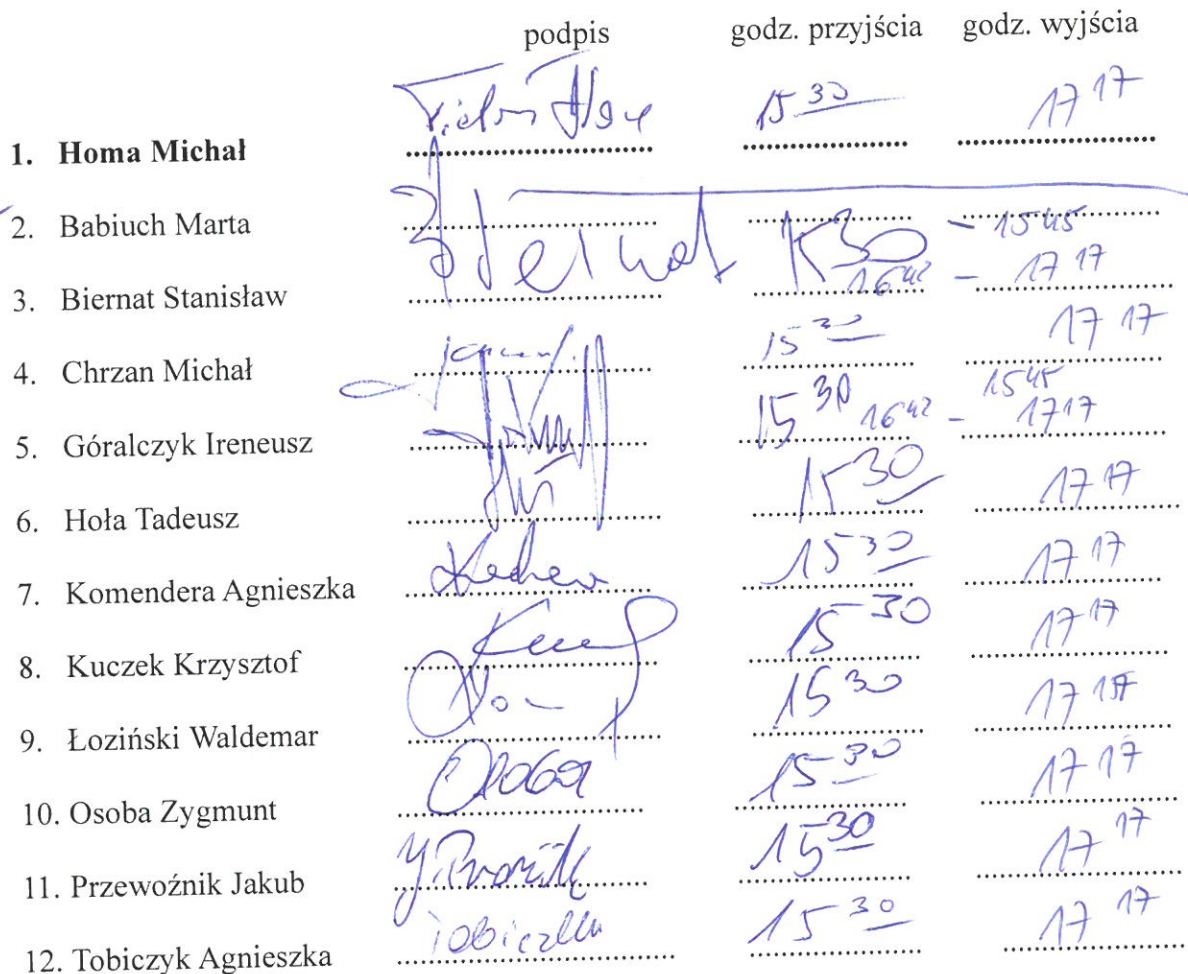 podpis godz. przyjścia godz. wyjścia
1. Homa Michał 15 30 17 17
2. Babiuch Marta
3. Biernat Stanisław Biernat 15 30 - 15 45
16 42 - 17 17
4. Chrzan Michał 15 30 17 17
5. Góralczyk Ireneusz 15 30 15 45
16 42 - 17 17
6. Hoła Tadeusz 15 30 17 17
7. Komendera Agnieszka 15 30 17 17
8. Kuczek Krzysztof 15 30 17 17
9. Łoziński Waldemar 15 30 17 17
10. Osoba Zygmunt Osoba 15 30 17 17
11. Przewoźnik Jakub 15 30 17 17
12. Tobiczyk Agnieszka 15 30 17 17